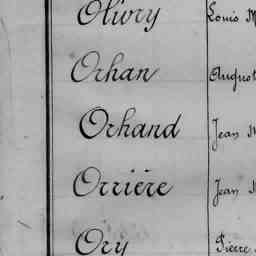 Olivry Louis M
Orhan August
Orhand Jean M
Orrière Jean M
Ory Pierre